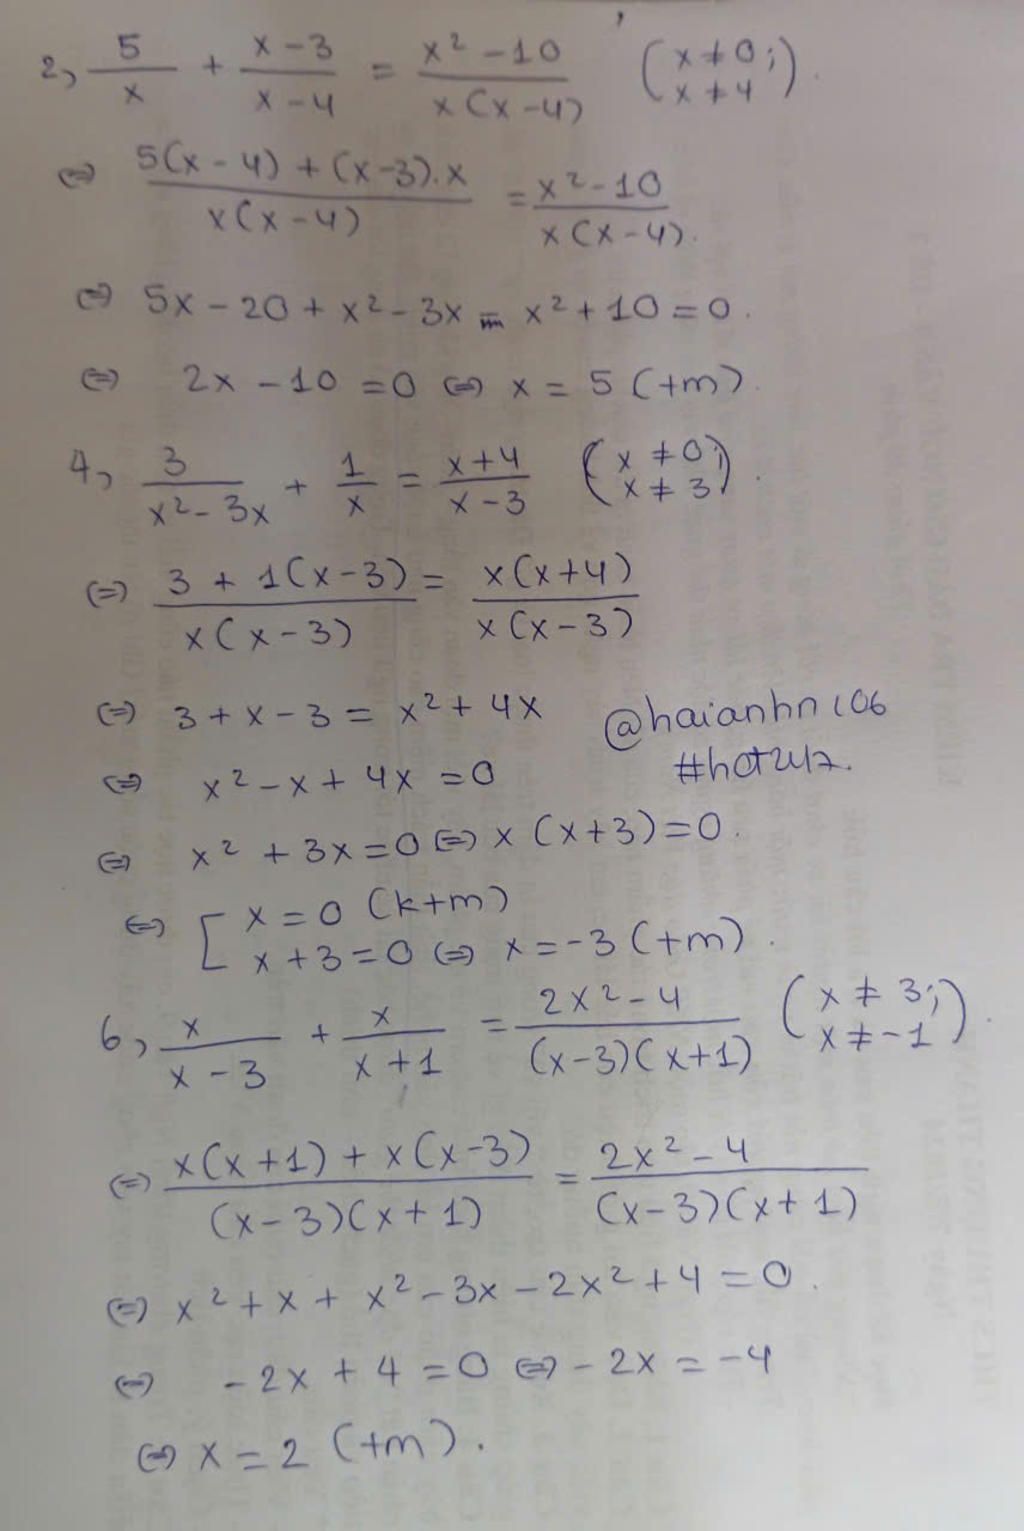 2, 5/x + (x-3)/(x-4) = (x² - 10)/(x(x-4)) (x ≠ 0; x ≠ 4).
⇔ (5(x-4) + (x-3).x)/(x(x-4)) = (x² - 10)/(x(x-4)).
⇔ 5x - 20 + x² - 3x - x² + 10 = 0.
⇔ 2x - 10 = 0 ⇔ x = 5 (tm).
4, 3/(x² - 3x) + 1/x = (x+4)/(x-3) (x ≠ 0; x ≠ 3).
⇔ (3 + 1(x-3))/(x(x-3)) = (x(x+4))/(x(x-3))
⇔ 3 + x - 3 = x² + 4x
@haianhn106
#hot247.
⇔ x² - x + 4x = 0
⇔ x² + 3x = 0 ⇔ x(x+3) = 0.
⇔ [ x = 0 (ktm)
x + 3 = 0 ⇔ x = -3 (tm).
6, x/(x-3) + x/(x+1) = (2x² - 4)/((x-3)(x+1)) (x ≠ 3; x ≠ -1).
⇔ (x(x+1) + x(x-3))/((x-3)(x+1)) = (2x² - 4)/((x-3)(x+1))
⇔ x² + x + x² - 3x - 2x² + 4 = 0.
⇔ -2x + 4 = 0 ⇔ -2x = -4
⇔ x = 2 (tm).